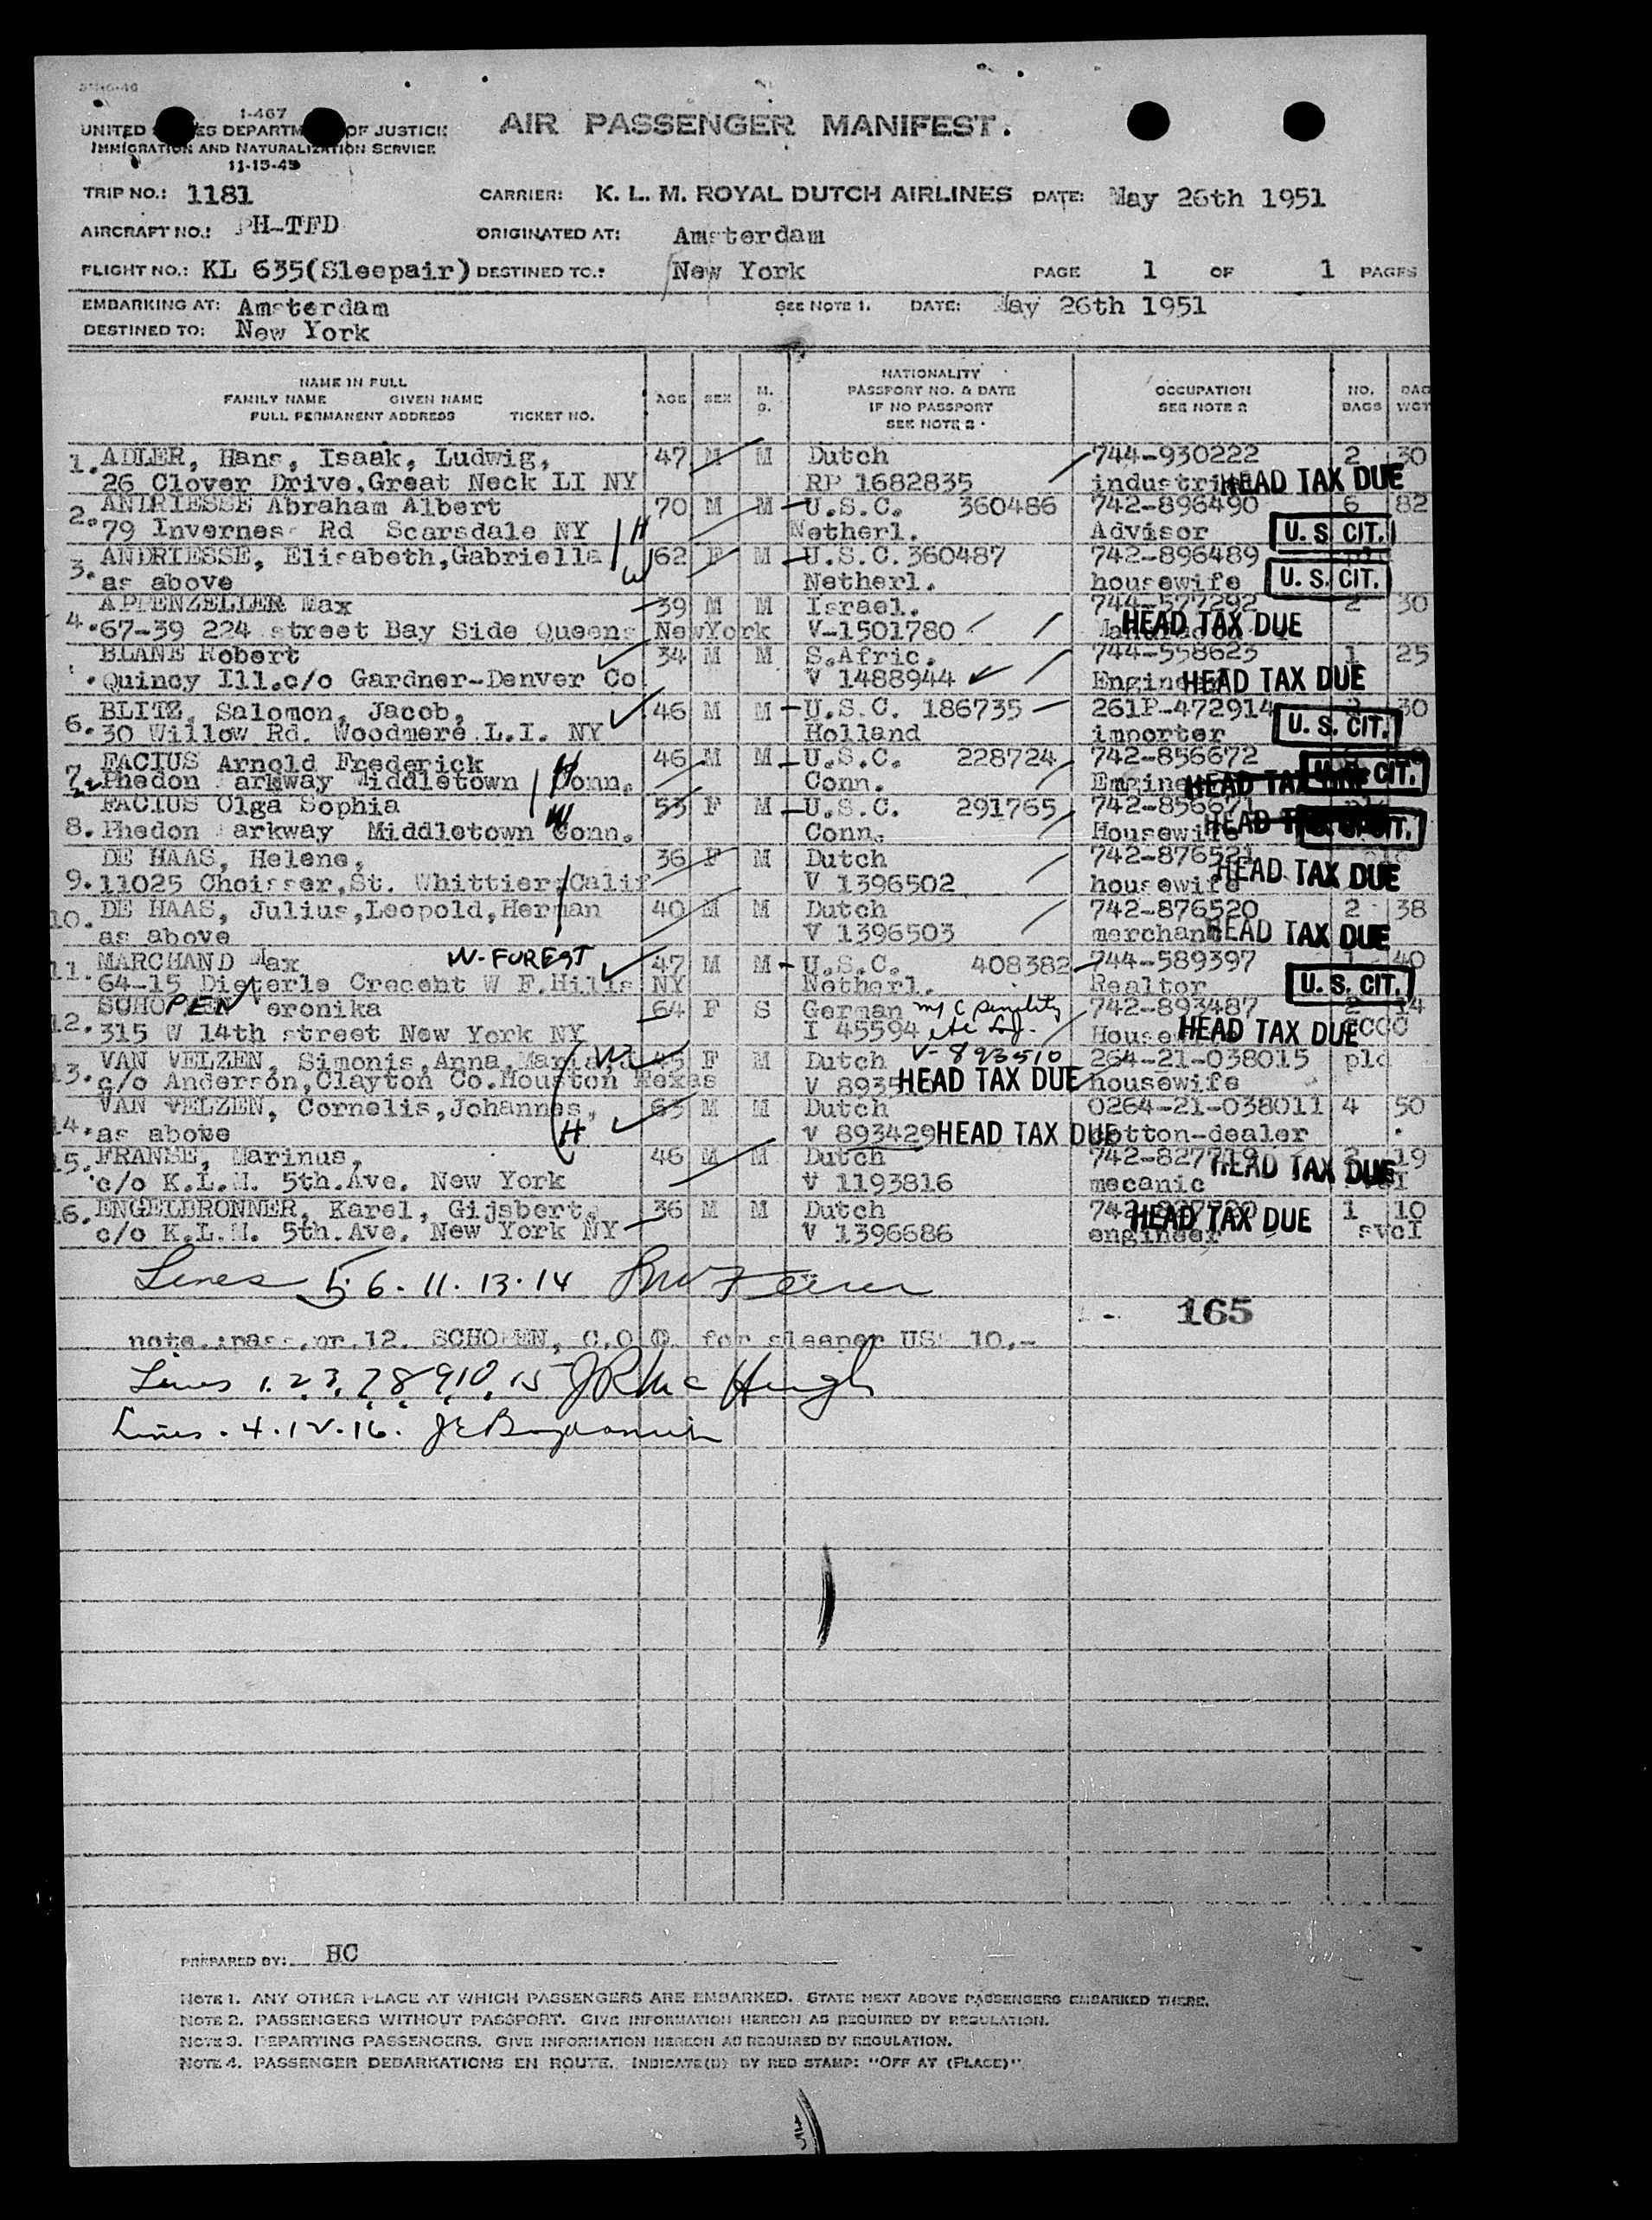 I-467
UNITED STATES DEPARTMENT OF JUSTICE
IMMIGRATION AND NATURALIZATION SERVICE
11-15-45
AIR PASSENGER MANIFEST.
TRIP NO.: 1181 CARRIER: K. L. M. ROYAL DUTCH AIRLINES DATE: May 26th 1951
AIRCRAFT NO.: PH-TFD ORIGINATED AT: Amsterdam
FLIGHT NO.: KL 635(Sleepair) DESTINED TO.: New York PAGE 1 OF 1 PAGES
EMBARKING AT: Amsterdam SEE NOTE 1. DATE: May 26th 1951
DESTINED TO: New York
NAME IN FULL
FAMILY NAME GIVEN NAME
FULL PERMANENT ADDRESS TICKET NO.
AGE SEX M. S.
NATIONALITY
PASSPORT NO. & DATE
IF NO PASSPORT
SEE NOTE 2
OCCUPATION
SEE NOTE 2
NO. BAGS
BAG WGT
1. ADLER, Hans, Isaak, Ludwig, 47 M M Dutch 744-930222 2 30
26 Clover Drive,Great Neck LI NY RP 1682835 industri HEAD TAX DUE
2. ANDRIESSE Abraham Albert 70 M M U.S.C. 360486 742-896490 6 82
79 Inverness Rd Scarsdale NY H Netherl. Advisor U. S. CIT.
3. ANDRIESSE, Elisabeth,Gabriella W 62 F M U.S.C.360487 742-896489
as above Netherl. housewife U. S. CIT.
4. APPENZELLER Max 39 M M Israel. 744-577292 2 30
67-39 224 street Bay Side Queens NewYork V-1501780 HEAD TAX DUE
BLANE Robert 34 M M S.Afric. 744-558623 1 25
Quincy Ill.c/o Gardner-Denver Co. V 1488944 Engineer HEAD TAX DUE
6. BLITZ, Salomon, Jacob, 46 M M U.S.C. 186735 261P-472914 30
30 Willow Rd. Woodmere L.I. NY Holland importer U. S. CIT.
7. FACIUS Arnold Frederick H 46 M M U.S.C. 228724 742-856672
Phedon Parkway Middletown Conn. Conn. Engine HEAD TAX U. S. CIT.
8. FACIUS Olga Sophia W 53 F M U.S.C. 291765 742-856671
Phedon Parkway Middletown Conn. Conn. Housewife HEAD T
9. DE HAAS, Helene, 36 F M Dutch 742-876521
11025 Choisser,St. Whittier,Calif V 1396502 housewife HEAD TAX DUE
10. DE HAAS, Julius,Leopold,Herman 40 M M Dutch 742-876520 2 38
as above V 1396503 merchant HEAD TAX DUE
11. MARCHAND Max W-FOREST 47 M M U.S.C. 408382 744-589397 1 40
64-15 Dieterle Crecent W F.Hills NY Netherl. Realtor U. S. CIT.
12. SCHOPEN Veronika 64 F S German 742-893487 2 14
315 W 14th street New York NY I 45594 House HEAD TAX DUE CCCC
13. VAN VELZEN, Simonis,Anna,Maria, W 45 F M Dutch V-893510 264-21-038015 plc
c/o Anderson,Clayton Co.Houston Texas V 8935 HEAD TAX DUE housewife
14. VAN VELZEN, Cornelis,Johannes, 63 M M Dutch 0264-21-038011 4 50
as above H V 893429 HEAD TAX DUE cotton-dealer
15. FRANSE, Marinus, 46 M M Dutch 742-827719 2 19
c/o K.L.M. 5th.Ave. New York V 1193816 mecanic HEAD TAX DUE
16. ENGELBRONNER, Karel, Gijsbert, 36 M M Dutch 742- 1 10
c/o K.L.M. 5th.Ave. New York NY V 1396686 engineer HEAD TAX DUE svcI
Lines 5. 6. 11. 13. 14
165
note.:pass.nr.12. SCHOPEN, C.O.D. for sleeper US$ 10,-
Lines 1. 2. 3. 7 8 9 10. 15 J R Mc Hugh
Lines. 4. 12. 16.
PREPARED BY: HC
NOTE 1. ANY OTHER PLACE AT WHICH PASSENGERS ARE EMBARKED. STATE NEXT ABOVE PASSENGERS EMBARKED THERE.
NOTE 2. PASSENGERS WITHOUT PASSPORT. GIVE INFORMATION HEREON AS REQUIRED BY REGULATION.
NOTE 3. DEPARTING PASSENGERS. GIVE INFORMATION HEREON AS REQUIRED BY REGULATION.
NOTE 4. PASSENGER DEBARKATIONS EN ROUTE. INDICATE(D) BY RED STAMP: "OFF AT (PLACE)"